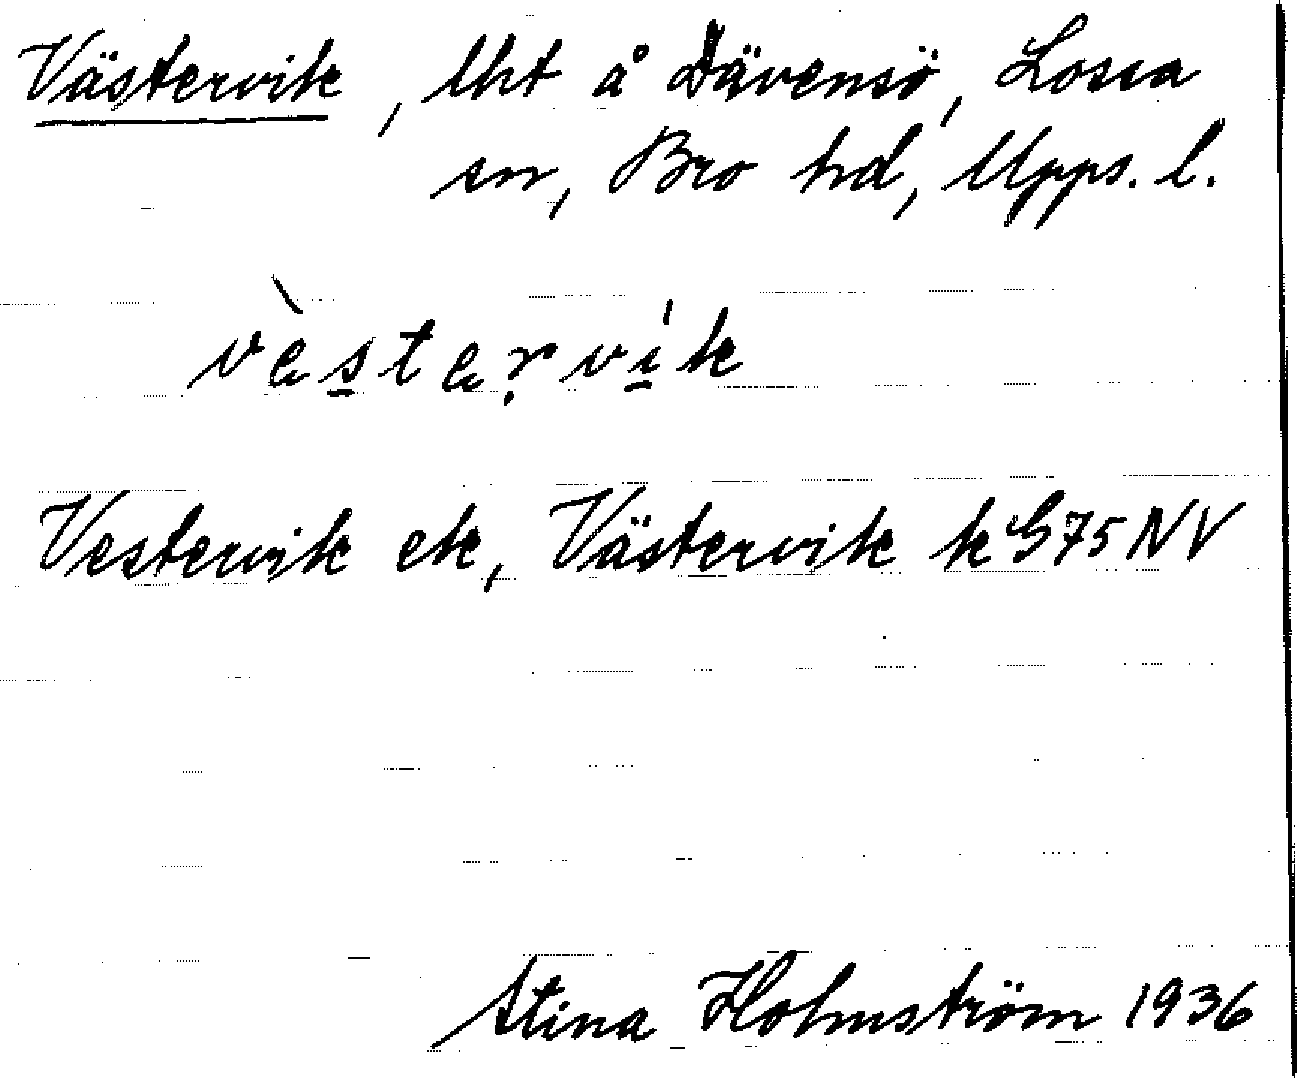 Västervik, Uht å Dävensö, Lossa
sn, Bro hd, Upps. l.
vèstervik
Vestervik ek, Västervik kG75NV
Stina Holmström 1936